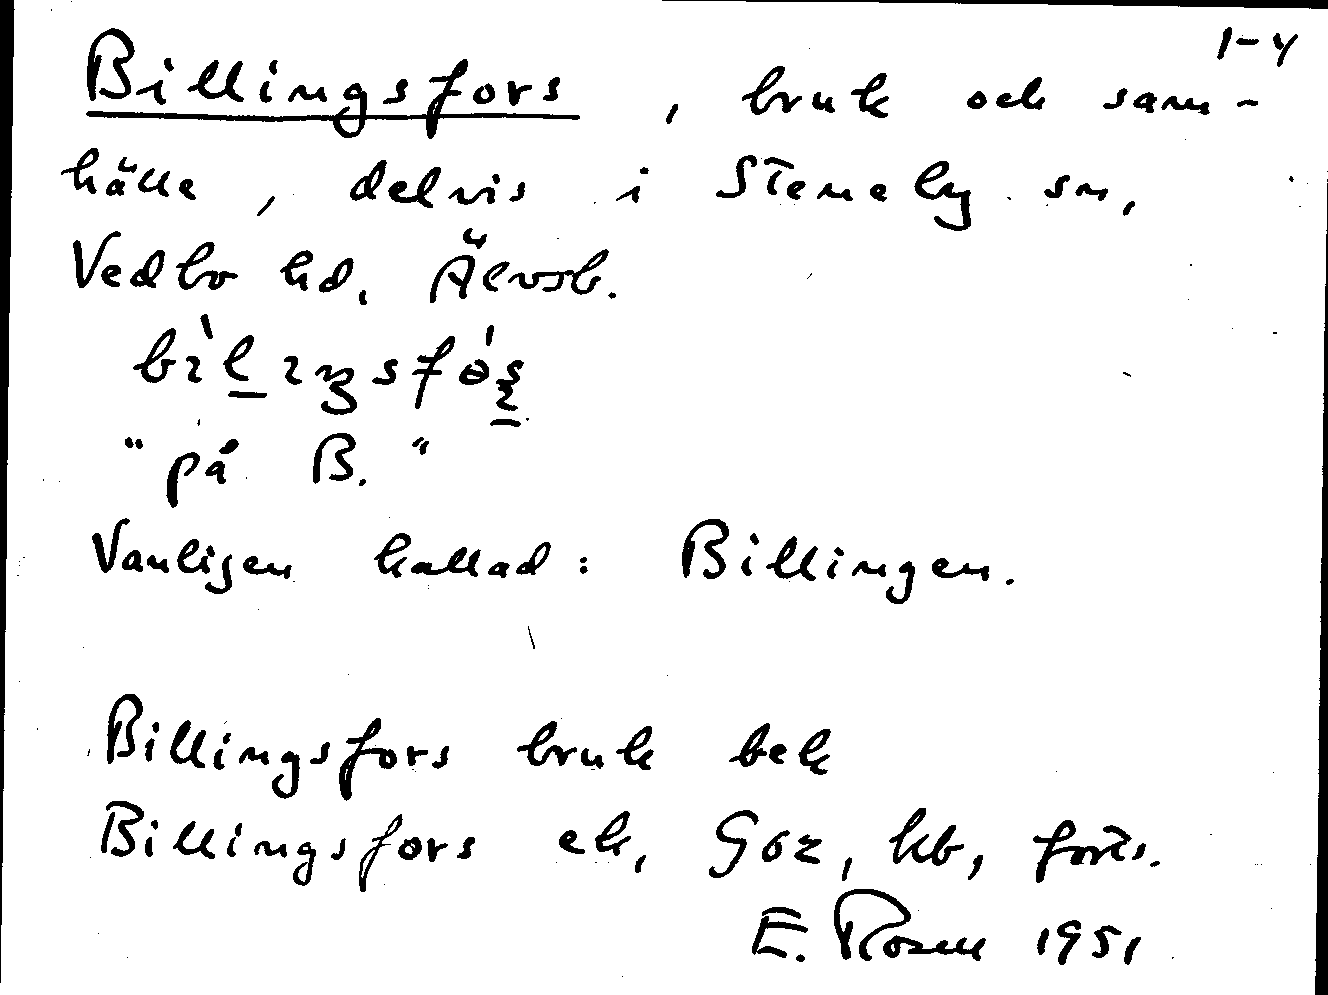 1-4
Billingsfors, bruk och sam-
hälle, delvis i Steneby sn,
Vedbo hd, Älvsb.
"på B."
Vanligen kallad: Billingen.
Billingsfors bruk bek
Billingsfors ek, Goz, kb, forts.
E. Rosell 1951